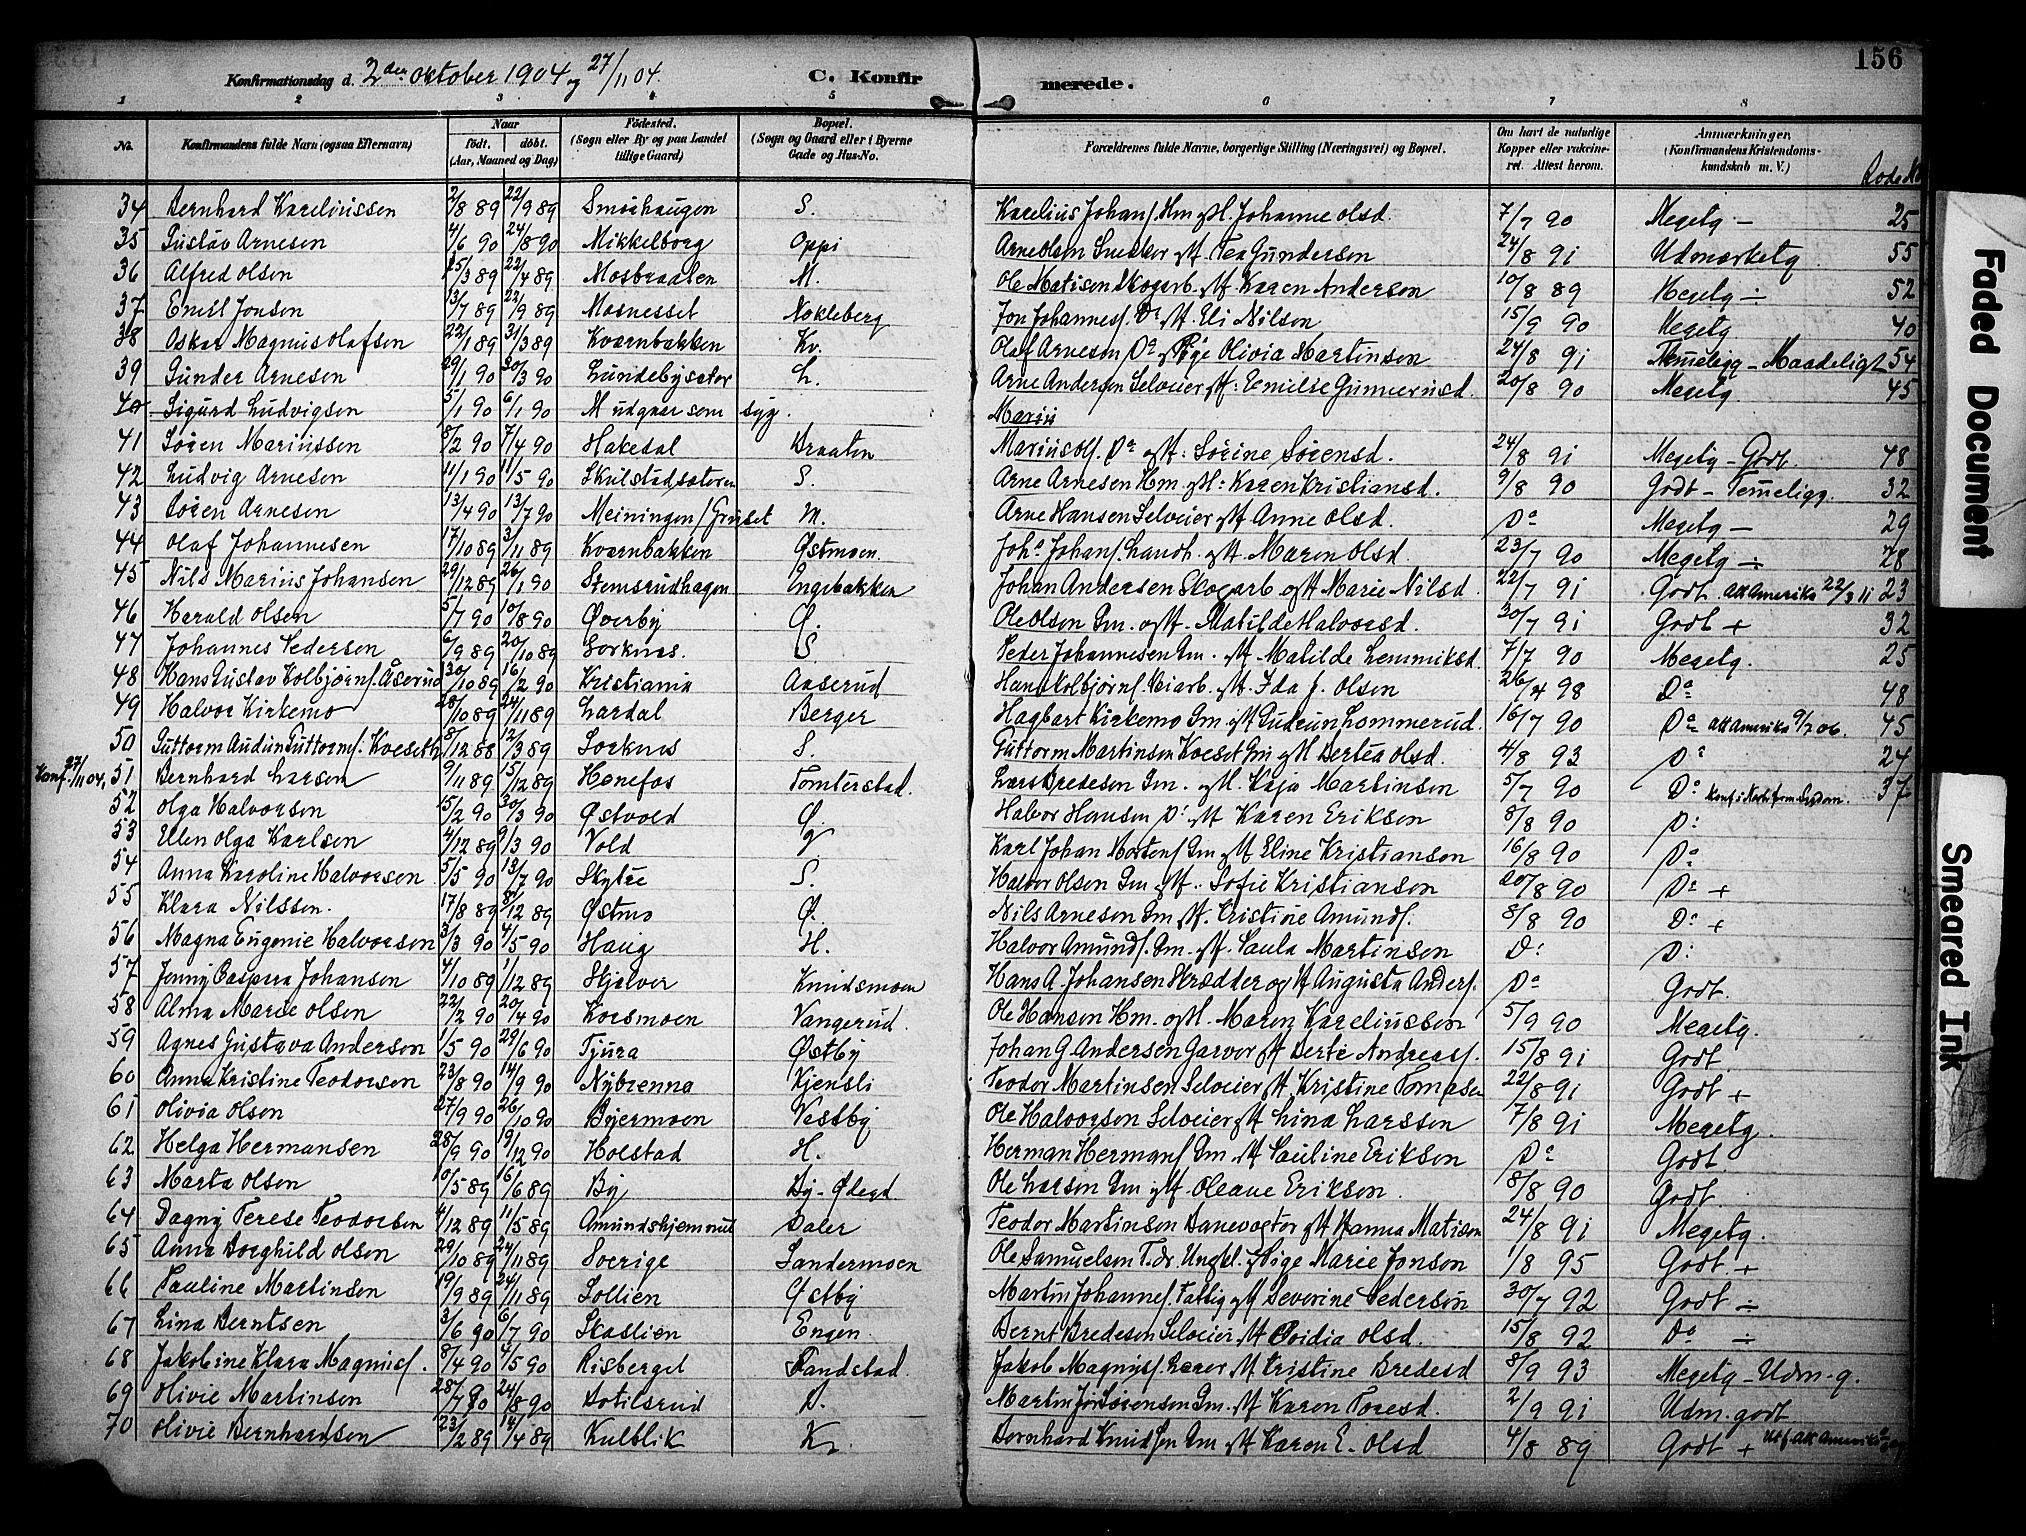 156
Konfirmationsdag d. 2den oktober 1904 og 27/11 04.
C. Konfir merede.
1 2 3 4 5 6 7 8
No. Konfirmandens fulde Navn (ogsaa Efternavn) Naar født. døbt. (Aar, Maaned og Dag) Fødested. (Sogn eller By og paa Landet tillige Gaard) Bopæl. (Sogn og Gaard eller i Byerne Gade og Hus-No. Forældrenes fulde Navne, borgerlige Stilling (Næringsvei) og Bopæl. Om havt de naturlige Kopper eller vakcineret. Attest herom. Anmærkninger. (Konfirmandens Kristendomskundskab m. V.)
34 Bernhard Kareliussen 2/8 89 22/9 89 Smørhaugen S. Karelius Johans. Hm og H. Johanne olsd. 7/7 90 Megetg — 25
35 Gustav Arnesen 4/6 90 24/8 90 Mikkelborg Oppi Arne olsen Snekker og H Tea Gundersen 24/8 91 Udmærketg 55
36 Alfred olsen 15/3 89 22/4 89 Mosbraaten M. Ole Matisen Skogarb. og H. Karen Andersen 10/8 89 Megetg ÷ 52
37 Emil Jonsen 13/7 89 22/9 89 Mosnesset Nokleberg Jon Johannes. Do H. Eli Nilsen 15/9 90 Megetg 40
38 Oskar Magnus olafsen 22/1 89 31/3 89 Kvarnbakken Kv. Olaf Arnesen Do og Pige Olivia Martinsen 24/8 91 Temeligg — Maadeligt 54
39 Gunder Arnesen 29/1 90 30/3 90 Lundebysæter L. Arne Andersen Selveier og H: Emilie Gunnerusd. 20/8 90 Megetg. 45
40 Sigurd Ludvigsen 5/1 90 6/1 90 M udgaar som syg. Mariu
41 Søren Mariussen 8/2 90 7/4 90 Hakedal Braaten Marius ols. Do og H: Sørine Sørensd. 24/8 91 Megetg — Godt. 48
42 Ludvig Arnesen 11/1 90 11/5 90 Skulstadsæteren S. Arne Arnesen Hm. og H: Karen Kristiansd. 9/8 90 Godt — Temeligg. 32
43 Søren Arnesen 13/4 90 13/7 90 Meiningen / Gruset M. Arne Hansen Selveier og H Anne olsd. Do Megetg — 29
44 Olaf Johannesen 17/10 89 3/11 89 Kvarnbakken Østmoen. Johs Johans. Landh. og H. Maren olsd. 23/7 90 Megetg ÷ 28
45 Nils Marius Johansen 29/12 89 26/1 90 Stemsrudhagen Engebakken Johan Andersen Skogarb og H Marie Nilsd. 22/7 91 Godt. Att Amerika 22/3 11 23
46 Harald olsen 5/7 90 10/8 90 Øverby Ø. Ole olsen Gm. og H. Matilde Halvorsd. 30/7 91 Godt + 32
47 Johannes Pedersen 6/9 89 20/10 89 Sorknes. S Peder Johannesen Gm. H Matilde Lemmiksd. 7/7 90 Megetg. 25
48 Hans Gustav Kolbjørns. Åserud 30/10 89 16/2 90 Kristiania Aaserud Hans Kolbjørns. Veiarb. og H. Ida J. Olsen 26/4 98 Do 48
49 Halvor Kirkemo 28/10 89 24/11 89 Lardal Berger Hagbart Kirkemo Gm og H Gudrun Lommerud. 16/7 90 Do Att Amerika 9/2 06. 45
50 Guttorm Audun Guttorms. Kveseth 8/12 88 12/3 89 Sorknes S. Guttorm Martinsen Kveset Gm og H Bertea olsd. 4/8 93 Do 24
Konf. 27/11 04. 51 Bernhard Larsen 9/11 89 15/12 89 Hønefos Tomterstad. Lars Bredesen Gm. og H. Kaja Martinsen 5/7 90 Do 37
52 Olga Halvorsen 15/2 90 30/3 90 Østvold Ø. Halvor Hansen Do og H Karen Eriksen 8/8 90 Do
53 Ellen Olga Karlsen 4/12 89 9/3 90 Vold V Karl Johan Mortens. Gm og H Eline Kristiansen 16/8 90 Do
54 Anna Karoline Halvorsen 5/5 90 13/7 90 Skytre S. Halvor Olsen Gm og H. Sofie Kristiansen 20/8 90 Do +
55 Klara Nilssen. 17/8 89 8/12 89 Østmo Ø. Nils Arnesen Gm og H. Kristine Amunds. 8/8 90 Do +
56 Magna Eugenie Halvorsen 3/3 90 4/5 90 Haug H. Halvor Amunds. Gm. og H. Paula Martinsen Do Do
57 Jenny Caspara Johansen 4/10 89 1/12 89 Skjølver Knudsmoen Hans A. Johansen Skrædder og H Augusta Anders. Do Godt.
58 Alma Marie olsen 22/2 90 20/4 90 Korsmoen Vangerud. Ole Hansen Hm. og H. Maren Kareliussen 5/9 90 Megetg.
59 Agnes Gustava Andersen 1/5 90 29/6 90 Tjura Østby Johan G. Andersen Garver og H Berte Andreas. 15/8 91 Godt
60 Anna Kristine Teodorsen 23/8 90 14/9 90 Nybrenna Kjensli Teodor Martinsen Selveier H Kristine Tomasen 22/8 91 Godt +
61 Olivia olsen 27/9 90 26/10 90 Byermoen Vestby Ole Halvorsen Selveier og H Lina Larssen 7/8 91 Megetg.
62 Helga Hermansen 28/9 90 19/12 90 Holstad H. Herman Hermans. Gm og H Pauline Eriksen Do Godt.
63 Marta olsen 10/5 89 16/6 89 By By-Ødegd Ole Larsen Gm og H. Oleane Eriksen. 8/8 90 Godt.
64 Dagny Terese Teodorsen 4/12 89 11/5 89 Amundskjemrud Daler Teodor Martinsen Banevogter og H Hanna Matisen 24/8 91 Megetg.
65 Anna Borghild olsen 29/10 89 24/11 89 Sverige Sandermoen Ole Samuelsen T.dr. Ungkl. og Pige Marie Jonsen 1/8 95 Godt +
66 Pauline Martinsen 19/9 89 24/11 89 Sollien Østby Martin Johannes. Fattig og H Severine Pedersen 30/7 92 Godt ÷
67 Lina Berntsen 3/6 90 6/7 90 Skaslien Engen. Bernt Bredesen Selveier H Ovidia olsd. 15/8 92 Do ÷
68 Jakobine Klara Magnus. 8/4 90 4/5 90 Risberget Sandstad. Jakob Magnus. Lærer H Kristine Bredesd 8/9 93 Megetg — Udm. g.
69 Olivie Martinsen 28/7 90 24/8 90 Botilsrud B. Martin Jør Sørensen Gm. H Karen Toresd. 2/9 91 Udm. godt
70 Olivie Bernhardsen 23/2 89 14/4 89 Kulblik K. Bernhard Knudsen Gm og H Karen E. Olsd 4/8 89 Godt +
Faded Document
Smeared Ink